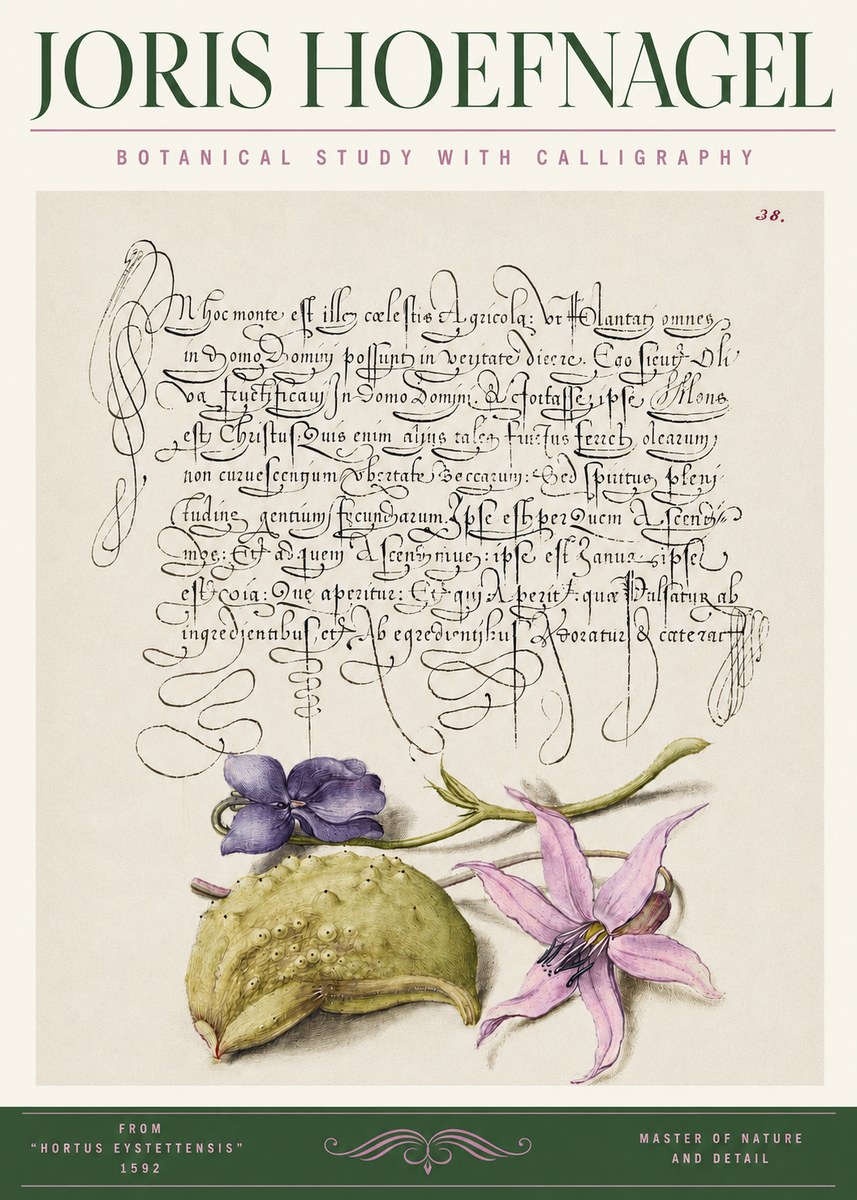 JORIS HOEFNAGEL
BOTANICAL STUDY WITH CALLIGRAPHY
38.
hoc monte est ille cœlestis Agricola: Vt Plantati omnes
in Domo Domini possunt in veritate dicere. Ego sicut Oli
va fructificavi In Domo Domini. fortasse ipse Mons
est Christus Quis enim alius tales olearum
non Sed spiritus pleni
tudine gentium Ipse est per Quem
ad quem ipse est ipse
est Que aperitur: qui Aperit: quæ Pulsatur ab
ingredientibus, et Ab egredientibus Adoratur & cæterae
FROM
“HORTUS EYSTETTENSIS”
1592
MASTER OF NATURE
AND DETAIL